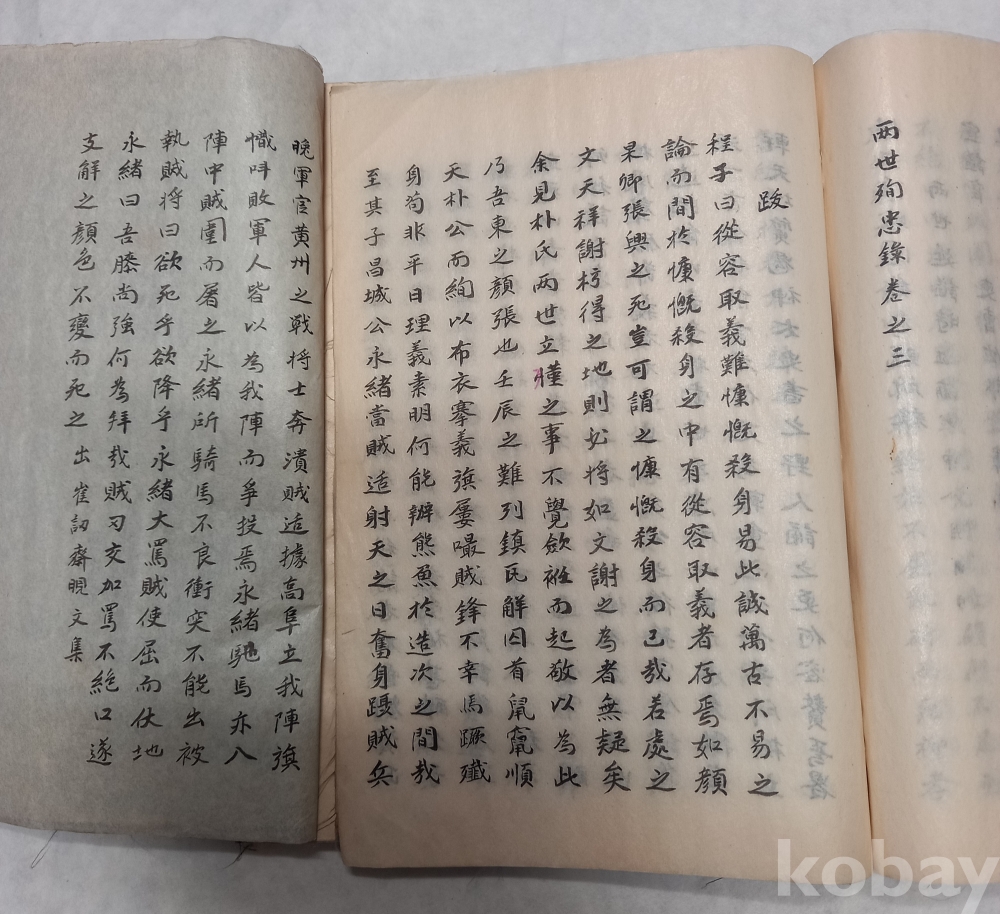 两世殉忠錄卷之三
跋
程子曰從容取義難慷慨殺身易此誠萬古不易之
論而間於慷慨殺身之中有從容取義者存焉如顔
杲卿張興之死豈可謂之慷慨殺身而已哉若處之
文天祥謝枋得之地則必將如文謝之為者無疑矣
余見朴氏两世立慬之事不覺斂袵而起敬以為此
乃吾東之顔張也壬辰之難列鎮瓦解囚首鼠竄順
天朴公而絢以布衣搴義旗屢嘬賊鋒不幸馬蹶殲
身苟非平日理義素明何能辦熊魚於造次之間哉
至其子昌城公永緒當賊适射天之日奮身躡賊兵
晩軍官黄州之戰将士奔潰賊适據高阜立我陣旗
幟呌敗軍人皆以為我陣而爭投焉永緒馳馬亦入
陣中賊圍而屠之永緒所騎馬不良衝突不能出被
執賊将曰欲死乎欲降乎永緒大罵賊使屈而伏地
永緒曰吾膝尚強何為拜哉賊刃交加罵不絶口遂
支解之顔色不變而死之 出崔訒齋晛文集
kobay